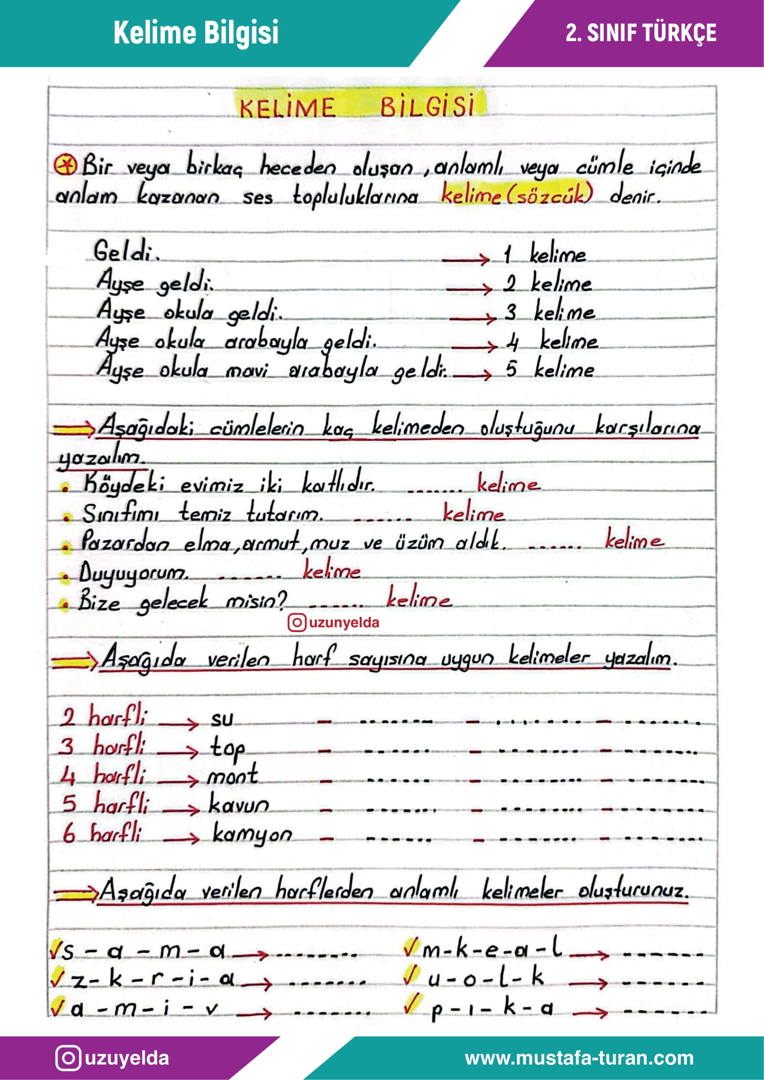 Kelime Bilgisi
2. SINIF TÜRKÇE
KELİME BİLGİSİ
Bir veya birkaç heceden oluşan, anlamlı veya cümle içinde
anlam kazanan ses topluluklarına kelime (sözcük) denir.
Geldi. → 1 kelime
Ayşe geldi. → 2 kelime
Ayşe okula geldi. → 3 kelime
Ayşe okula arabayla geldi. → 4 kelime
Ayşe okula mavi arabayla geldi. → 5 kelime
→ Aşağıdaki cümlelerin kaç kelimeden oluştuğunu karşılarına
yazalım.
• Köydeki evimiz iki katlıdır. ....... kelime
• Sınıfımı temiz tutarım. ....... kelime
• Pazardan elma, armut, muz ve üzüm aldık. ...... kelime
• Duyuyorum. ....... kelime
• Bize gelecek misin? ...... kelime
uzunyelda
→ Aşağıda verilen harf sayısına uygun kelimeler yazalım.
2 harfli → su - ....... - ....... - .......
3 harfli → top - ....... - ....... - .......
4 harfli → mont - ....... - ....... - .......
5 harfli → kavun - ....... - ....... - .......
6 harfli → kamyon - ....... - ....... - .......
→ Aşağıda verilen harflerden anlamlı kelimeler oluşturunuz.
✓ s - a - m - a → ........ ✓ m-k-e-a-l → ......
✓ z - k - r - i - a → ....... ✓ u-o-l-k → ......
✓ a - m - i - v → ....... ✓ p-ı-k-a → ......
uzuyelda
www.mustafa-turan.com